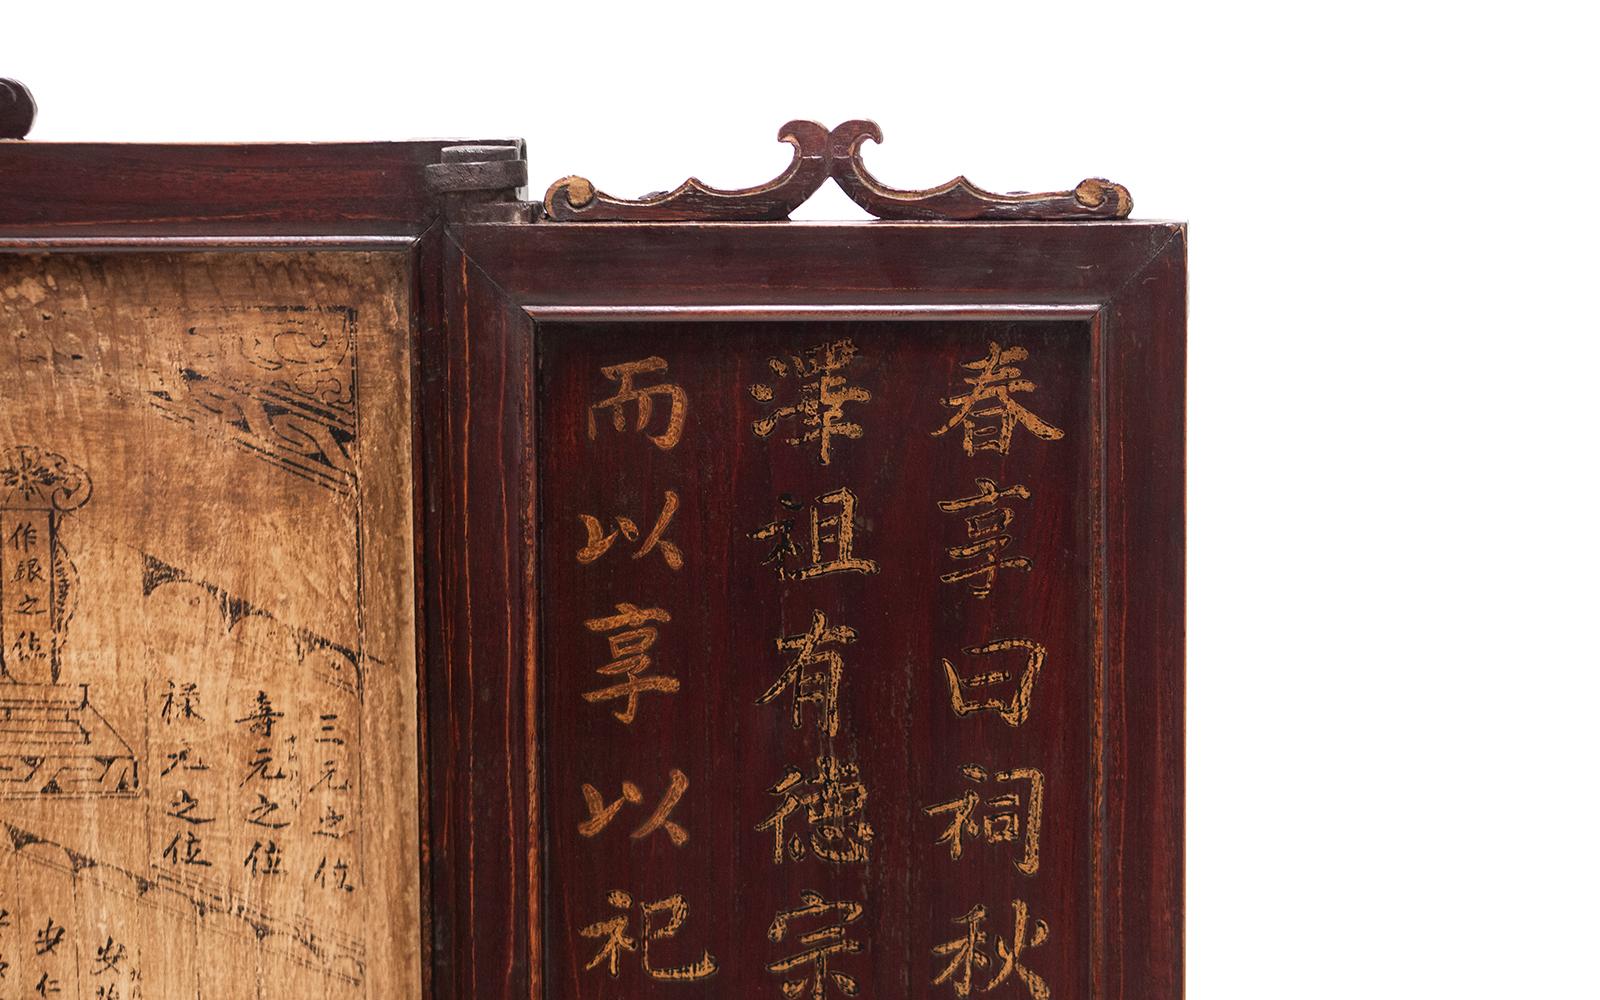 春享曰祠秋
澤祖有德宗
而以享以祀
三元之位
壽元之位
祿元之位
作銀之德
安
安仁